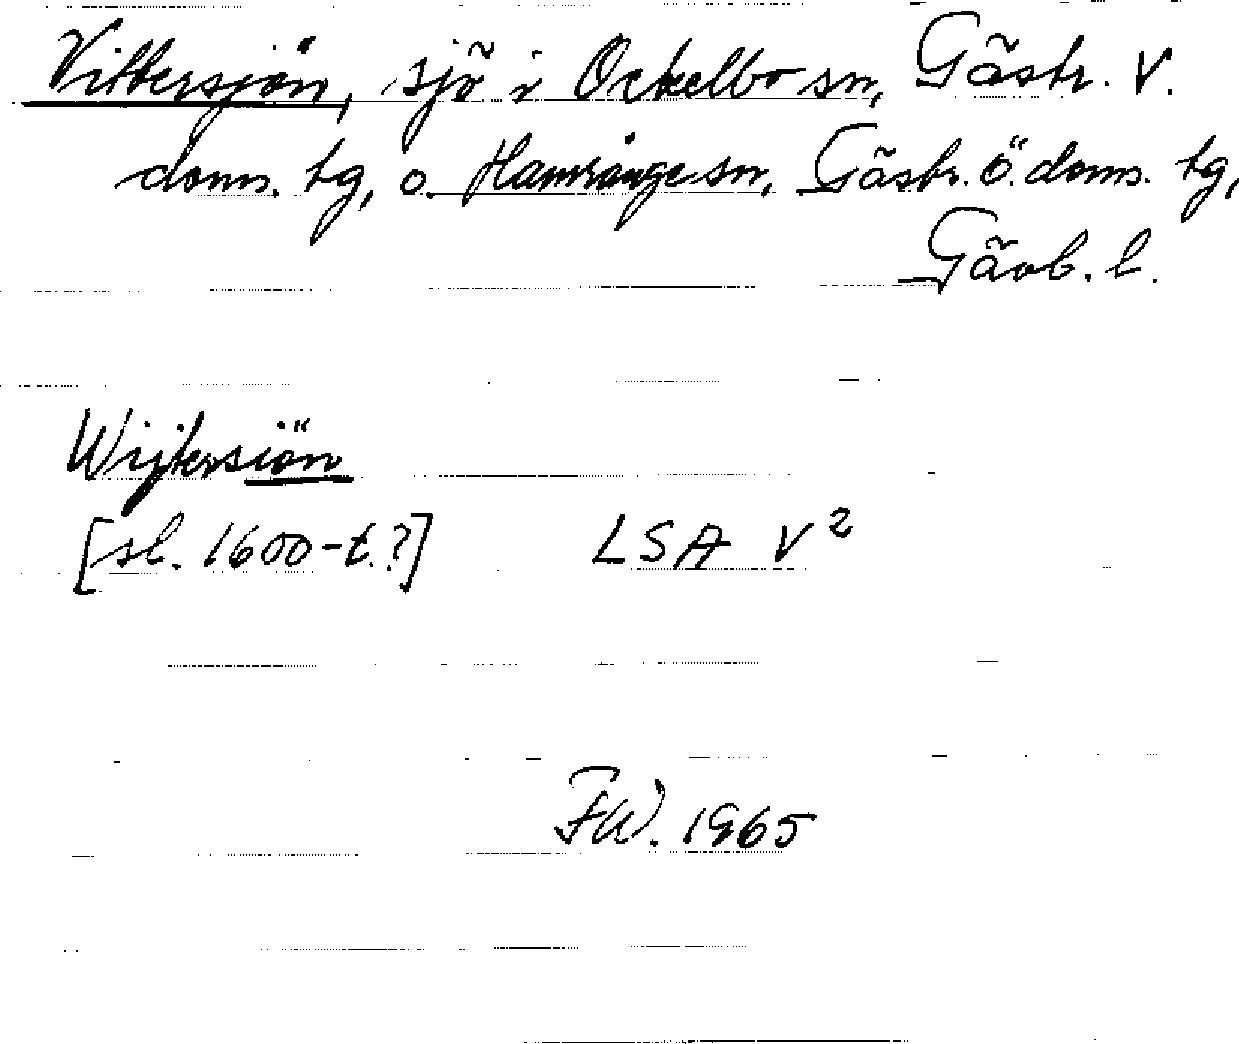 Vittersjön, sjö i Ockelbo sn, Gästr. V.
doms. tg, o. Hamrånge sn, Gästr. Ö. doms. tg,
Gävb. l.
Wijtersiön
[sl. 1600-t.?] LSA V²
FW. 1965